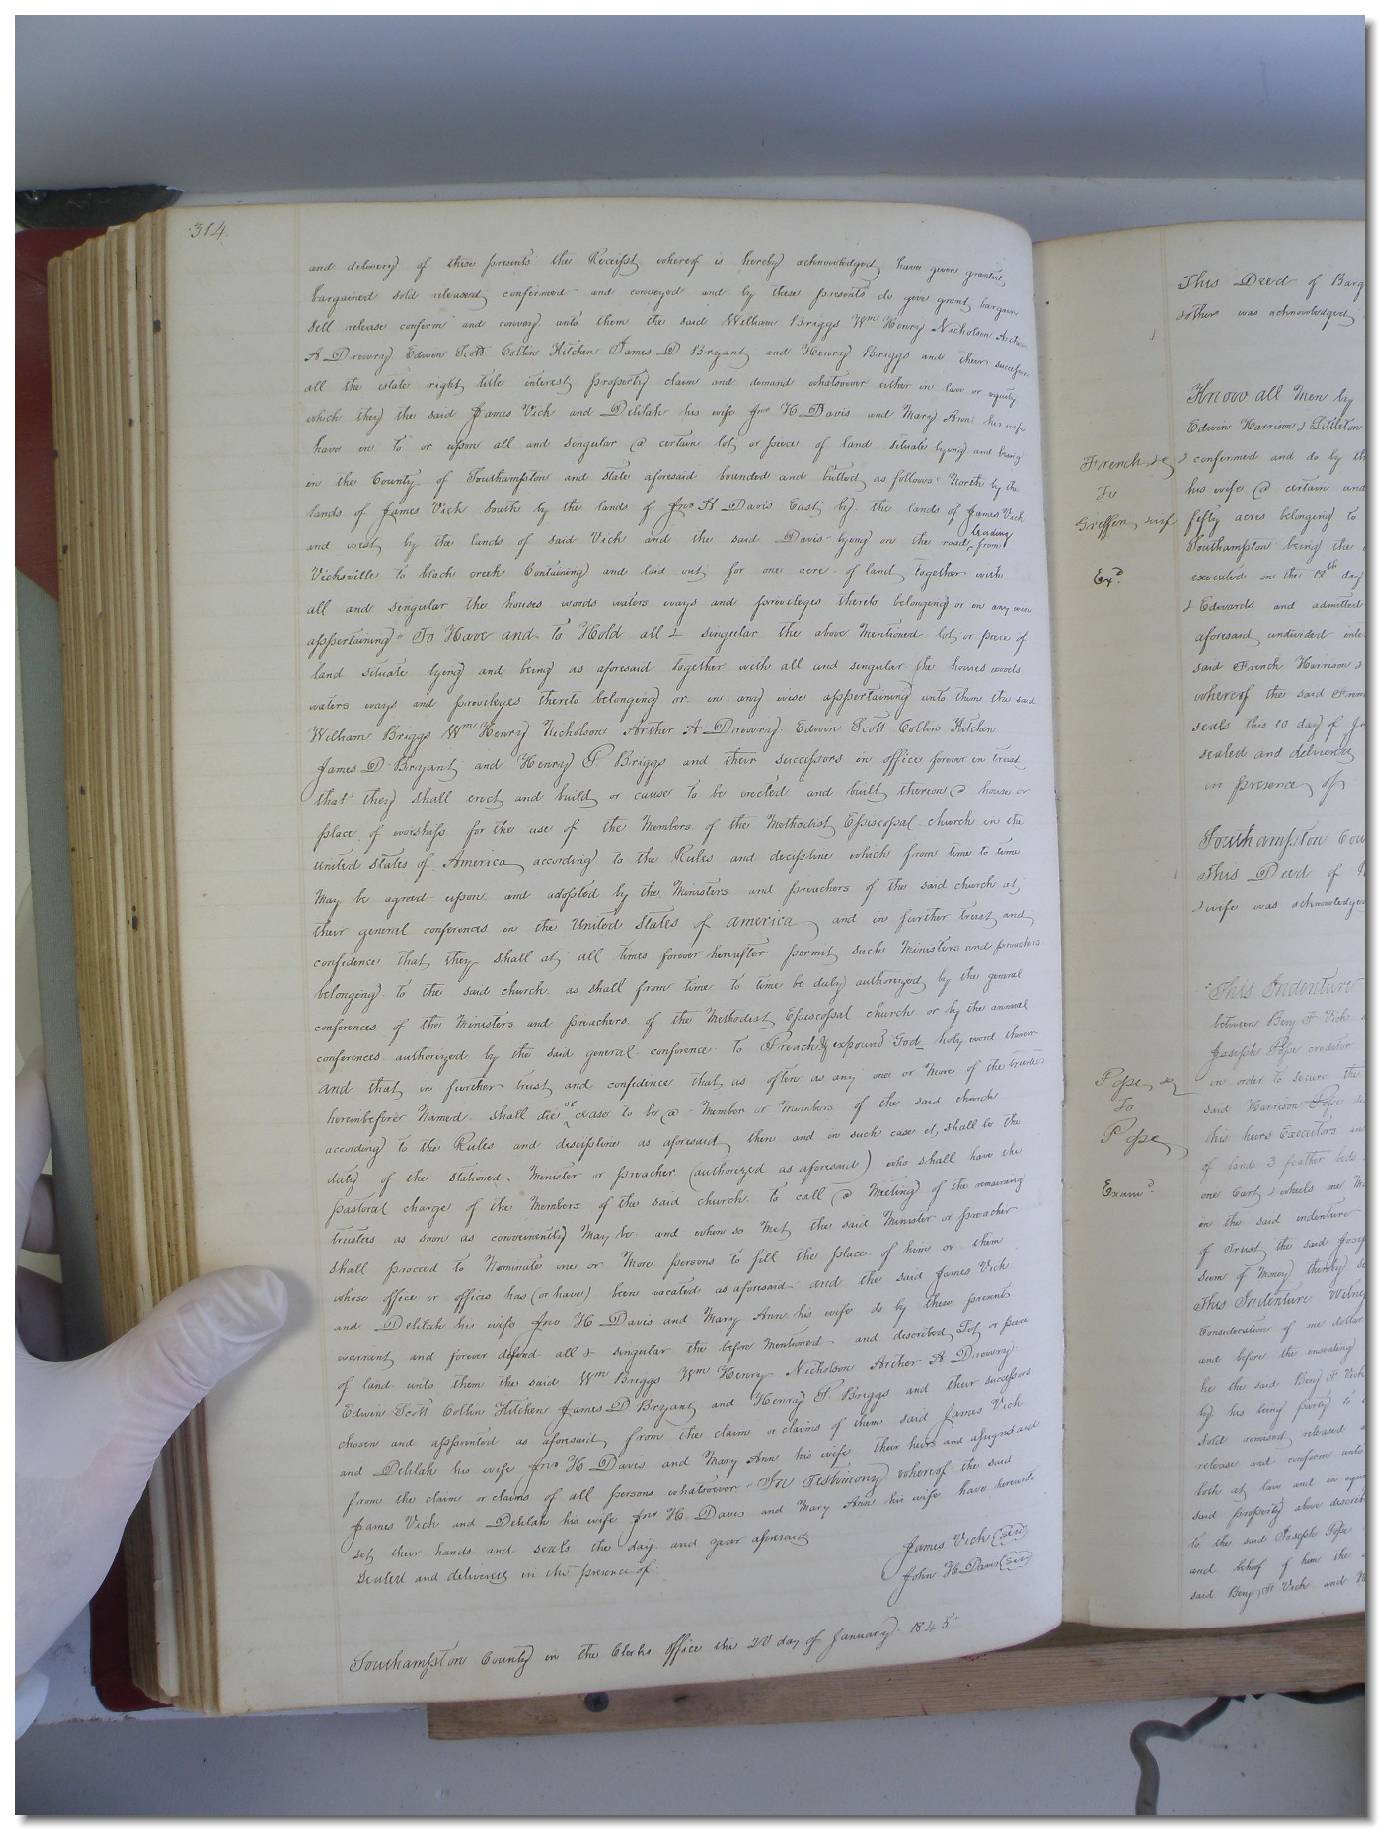 314.
and delivery of these presents the Receipt whereof is hereby acknowledged have given granted
bargained sold released confirmed and conveyed and by these presents do give grant bargain
sell release confirm and convey unto them the said William Briggs Wm Henry Nicholson Archer
A Drewry Edwin Scott Collin Kitchen James D Bryant and Henry Briggs and their successors
all the estate right title interest property claim and demand whatsoever either in law or equity
which they the said James Vick and Delilah his wife Jno H Davis and Mary Ann his wife
have in to or upon all and singular a certain lot or piece of land situate lying and being
in the County of Southampton and state aforesaid bounded and butted as follows North by the
lands of James Vick South by the lands of Jno H Davis East by the lands of James Vick
and west by the lands of said Vick and the said Davis lying on the road leading from
Vicksville to black creek Containing and laid out for one acre of land together with
all and singular the houses woods waters ways and privileges thereto belonging or in any wise
appertaining To Have and to Hold all & singular the above Mentioned lot or piece of
land situate lying and being as aforesaid together with all and singular the houses woods
waters ways and privileges thereto belonging or in any wise appertaining unto them the said
William Briggs Wm Henry Nicholson Archer A Drewry Edwin Scott Collin Kitchen
James D Bryant and Henry P. Briggs and their successors in office forever in trust
that they shall erect and build or cause to be erected and built thereon a house or
place of worship for the use of the Members of the Methodist Episcopal church in the
united States of America according to the Rules and decipline which from time to time
May be agreed upon and adopted by the Ministers and preachers of the said church at
their general conferences in the United States of america and in further trust and
confidence that they shall at all times forever hereafter permit such Ministers and preachers
belonging to the said church as shall from time to time be duly authorized by the general
conferences of the Ministers and preachers of the Methodist Episcopal church or by the annual
conferences authorized by the said general conference to Preach & expound God holy word therein
and that in further trust and confidence that as often as any one or More of the trustees
hereinbefore Named shall die or cease to be a Member or Members of the said church
according to the Rules and descipline as aforesaid then and in such case it shall be the
duty of the stationed Minister or preacher (authorized as aforesaid) who shall have the
pastoral charge of the Members of the said church to call a Meeting of the remaining
trustees as soon as conveniently May be and when so Met the said Minister or preacher
shall proceed to Nominate one or More persons to fill the place of him or them
whose office or offices has (or have) been vacated as aforesaid and the said James Vick
and Delilah his wife Jno H Davis and Mary Ann his wife do by these presents
warrant and forever defend all & singular the before Mentioned and described Lot or piece
of land unto them the said Wm Briggs Wm Henry Nicholson Archer A Drewry
Edwin Scott Collin Kitchen James D Bryant and Henry P. Briggs and their successors
chosen and appointed as aforesaid from the claim or claims of them said James Vick
and Delilah his wife Jno H Davis and Mary Ann his wife their heirs and assigns and
from the claim or claims of all persons whatsoever In Testimony whereof the said
James Vick and Delilah his wife Jno H. Davis and Mary Ann his wife have hereunto
set their hands and seals the day and year aforesaid
Sealed and delivered in the presence of
James Vick (seal)
John H Davis (seal)
Southampton County in the Clerks office the 20 day of January 1845
This Deed of Barg
others was acknowledged
Know all Men by
Edwin Harrison & Littleton
French &c
To
& confirmed and do by th
his wife a certain und
fifty acres belonging to
Southampton being the
Exd
executed on the day
& Edwards and admitted
aforesaid undivided inte
said French Harrison &
whereof the said Fren
seals this 10 day of Ja
sealed and delivered
in presence of
Southampton Cou
This Deed of
& wife was acknowledge
This Indenture
between Benj F Vick
Joseph Pope creditor
Pope &c
To
Pope
in order to secure the
said Harrison Pope
his heirs Executors an
of land 3 feather beds
Examd.
one Cart & wheels one
in the said indenture
of Trust the said Jose
sum of Money thereby se
This Indenture Witne
Consideration of one dollar
and before the ensealing
he the said Benj F Vick
by his being party to
sold remised released
release and confirm unto
both at law and in equi
said property above describ
to the said Joseph Pope
and behoof of him the
said Benj F Vick and